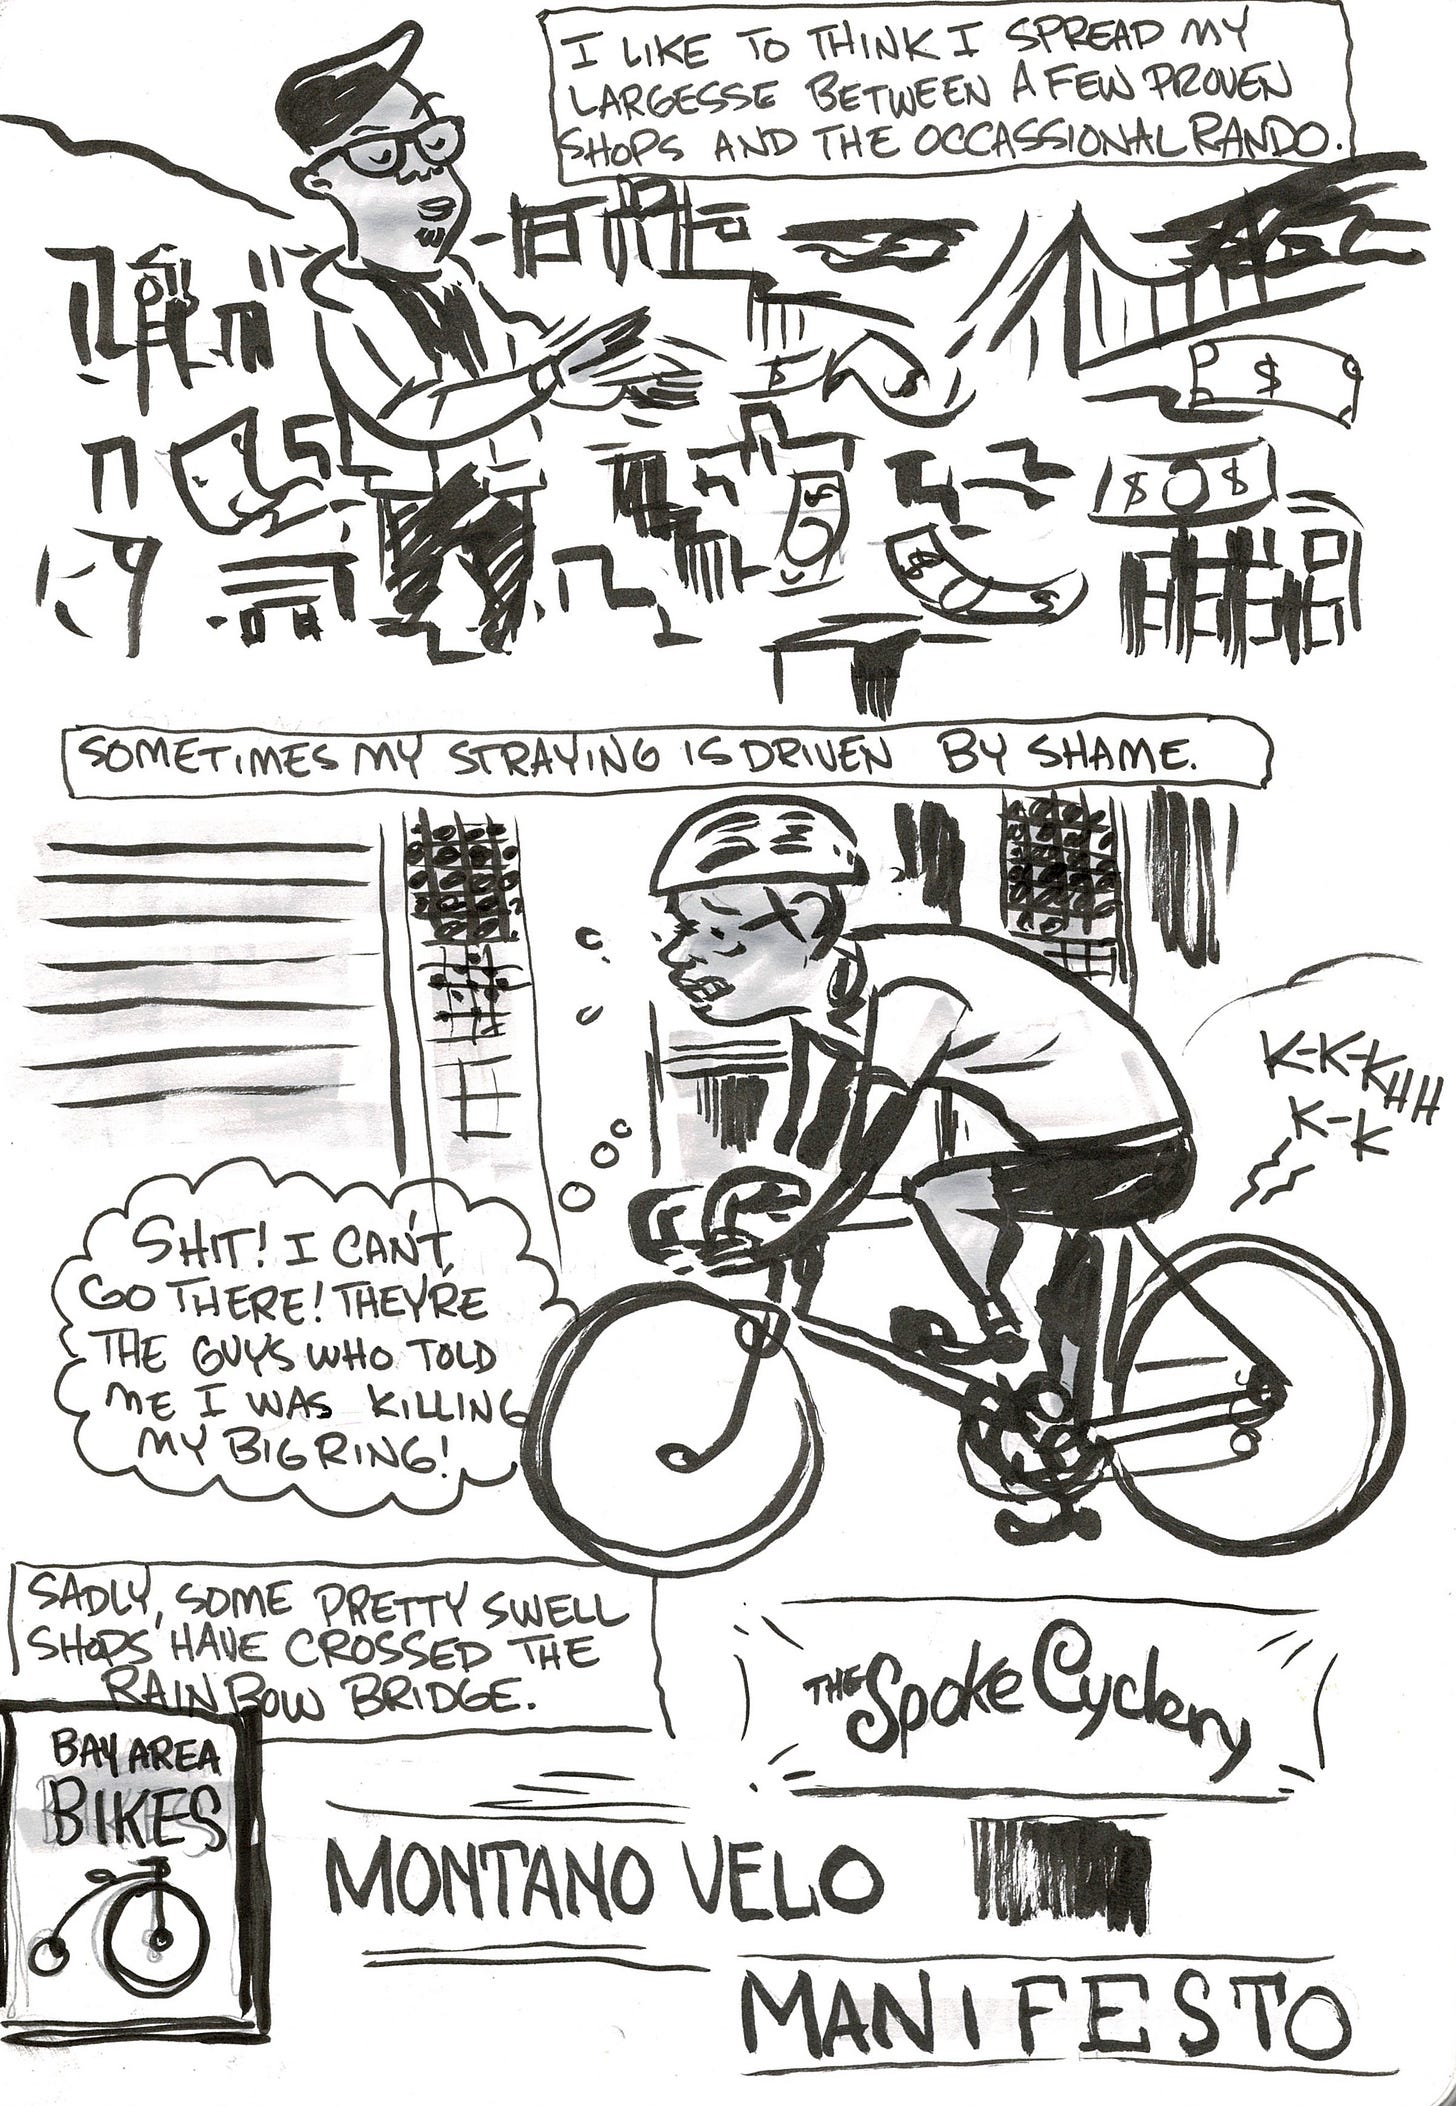 I LIKE TO THINK I SPREAD MY
LARGESSE BETWEEN A FEW PROVEN
SHOPS AND THE OCCASSIONAL RANDO.
$
$
$
$ $
$
$
$
SOMETIMES MY STRAYING IS DRIVEN BY SHAME.
K-K-KHH
K-K
SHIT! I CAN'T
GO THERE! THEY'RE
THE GUYS WHO TOLD
ME I WAS KILLING
MY BIG RING!
SADLY, SOME PRETTY SWELL
SHOPS HAVE CROSSED THE
RAINBOW BRIDGE.
BAY AREA
BIKES
THE Spoke Cyclery
MONTANO VELO
MANIFESTO